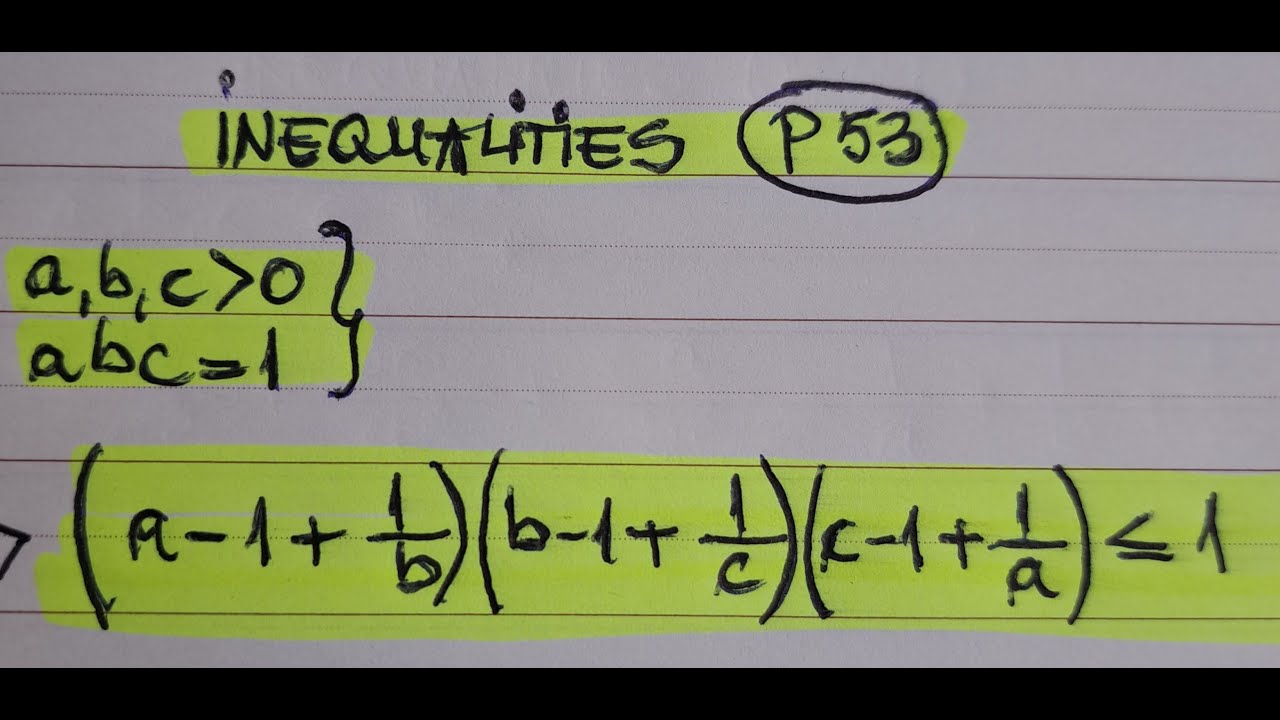 INEQUALITIES P53
a,b,c>0
abc=1
(a-1+1/b)(b-1+1/c)(c-1+1/a)≤1